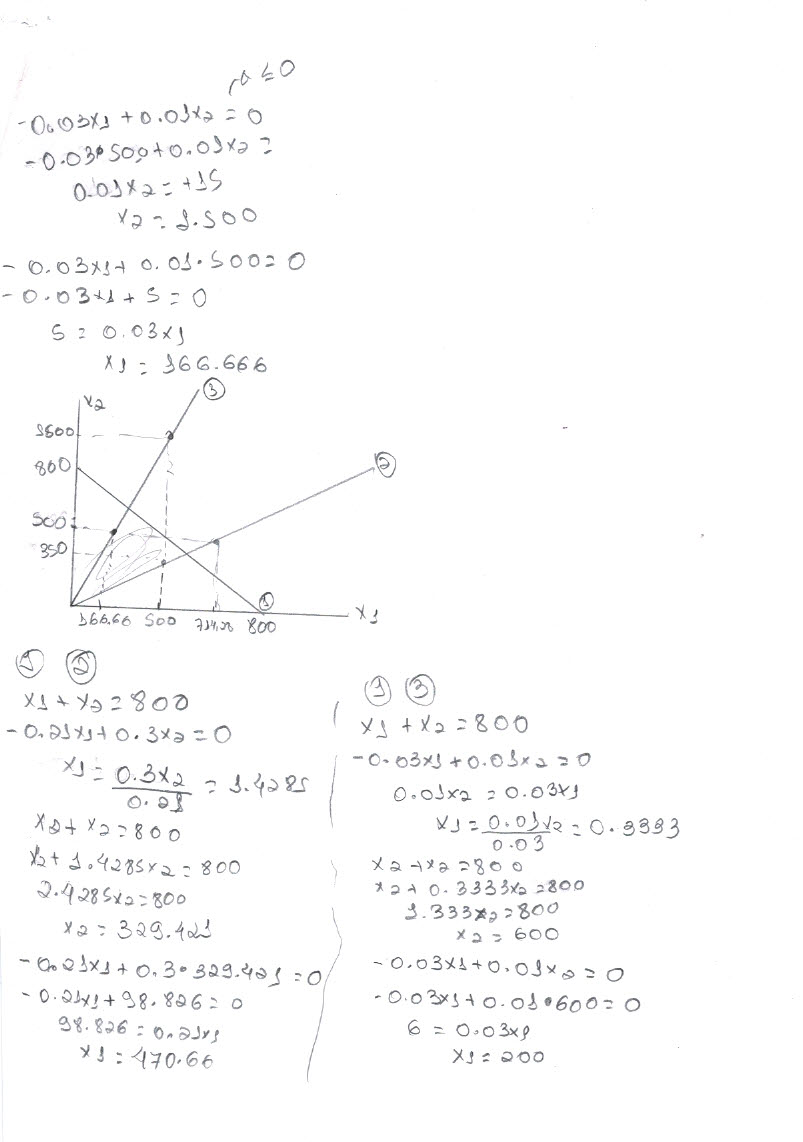 ≤ 0
-0.03x1 + 0.01x2 = 0
-0.03•500 + 0.01x2 =
0.01x2 = +15
x2 = 1.500
- 0.03x1 + 0.01.500 = 0
- 0.03x1 + 5 = 0
5 = 0.03x1
x1 = 166.666
x2
3
1500
800
2
500
350
1
x1
166.66 500 714.28 800
1 2
x1 + x2 = 800
-0.21x1 + 0.3x2 = 0
x1 = 0.3x2 / 0.21 = 1.4285
x1 + x2 = 800
x2 + 1.4285x2 = 800
2.4285x2 = 800
x2 = 329.421
-0.21x1 + 0.3•329.421 = 0
-0.21x1 + 98.826 = 0
98.826 = 0.21x1
x1 = 470.66
1 3
x1 + x2 = 800
-0.03x1 + 0.01x2 = 0
0.01x2 = 0.03x1
x1 = 0.01x2 / 0.03 = 0.3333
x1 + x2 = 800
x2 + 0.3333x2 = 800
1.333x2 = 800
x2 = 600
-0.03x1 + 0.01x2 = 0
-0.03x1 + 0.01•600 = 0
6 = 0.03x1
x1 = 200